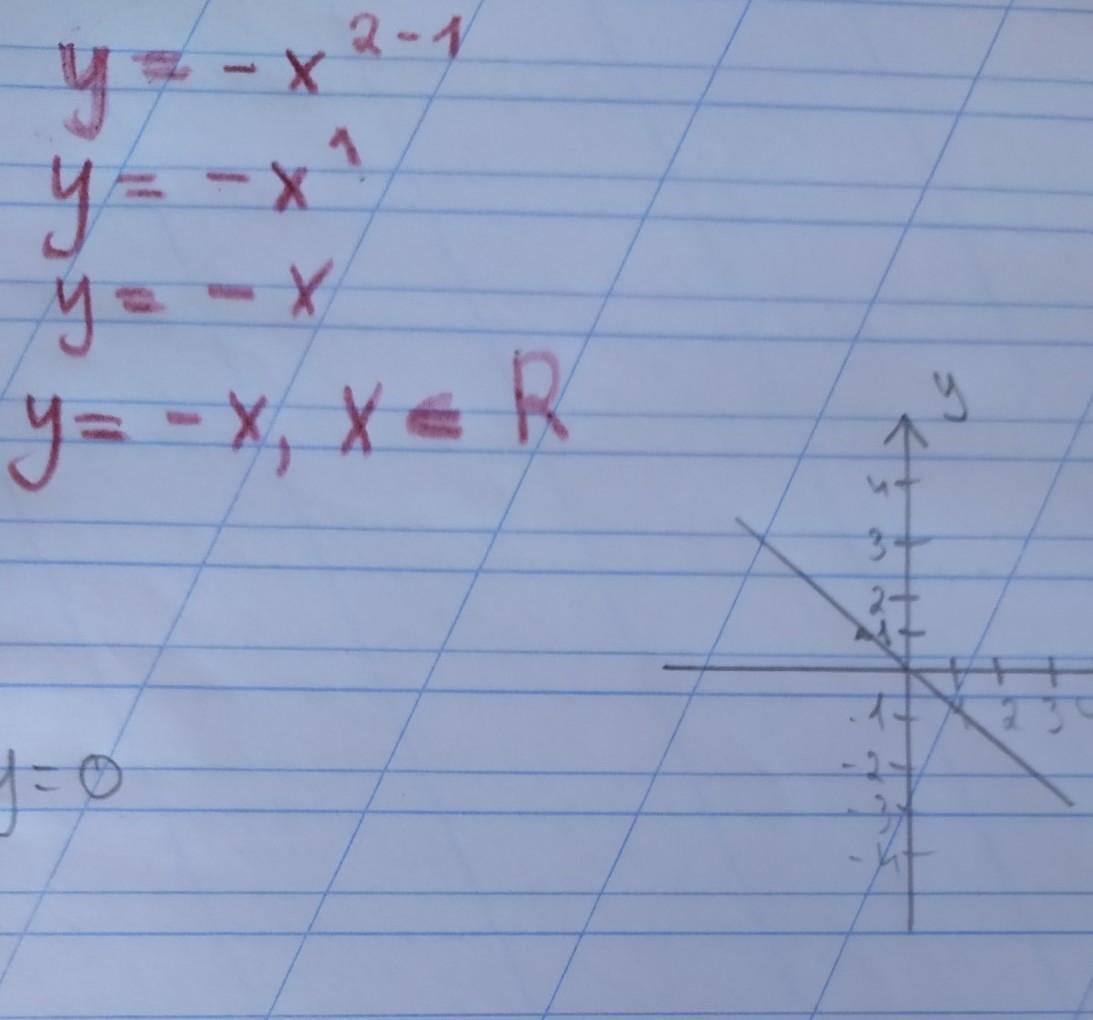 y = - x²⁻¹
y = - x¹
y = - x
y = - x, x ∈ R
y
4
3
2
1
1 2 3
-1
-2
-3
-4
y = 0